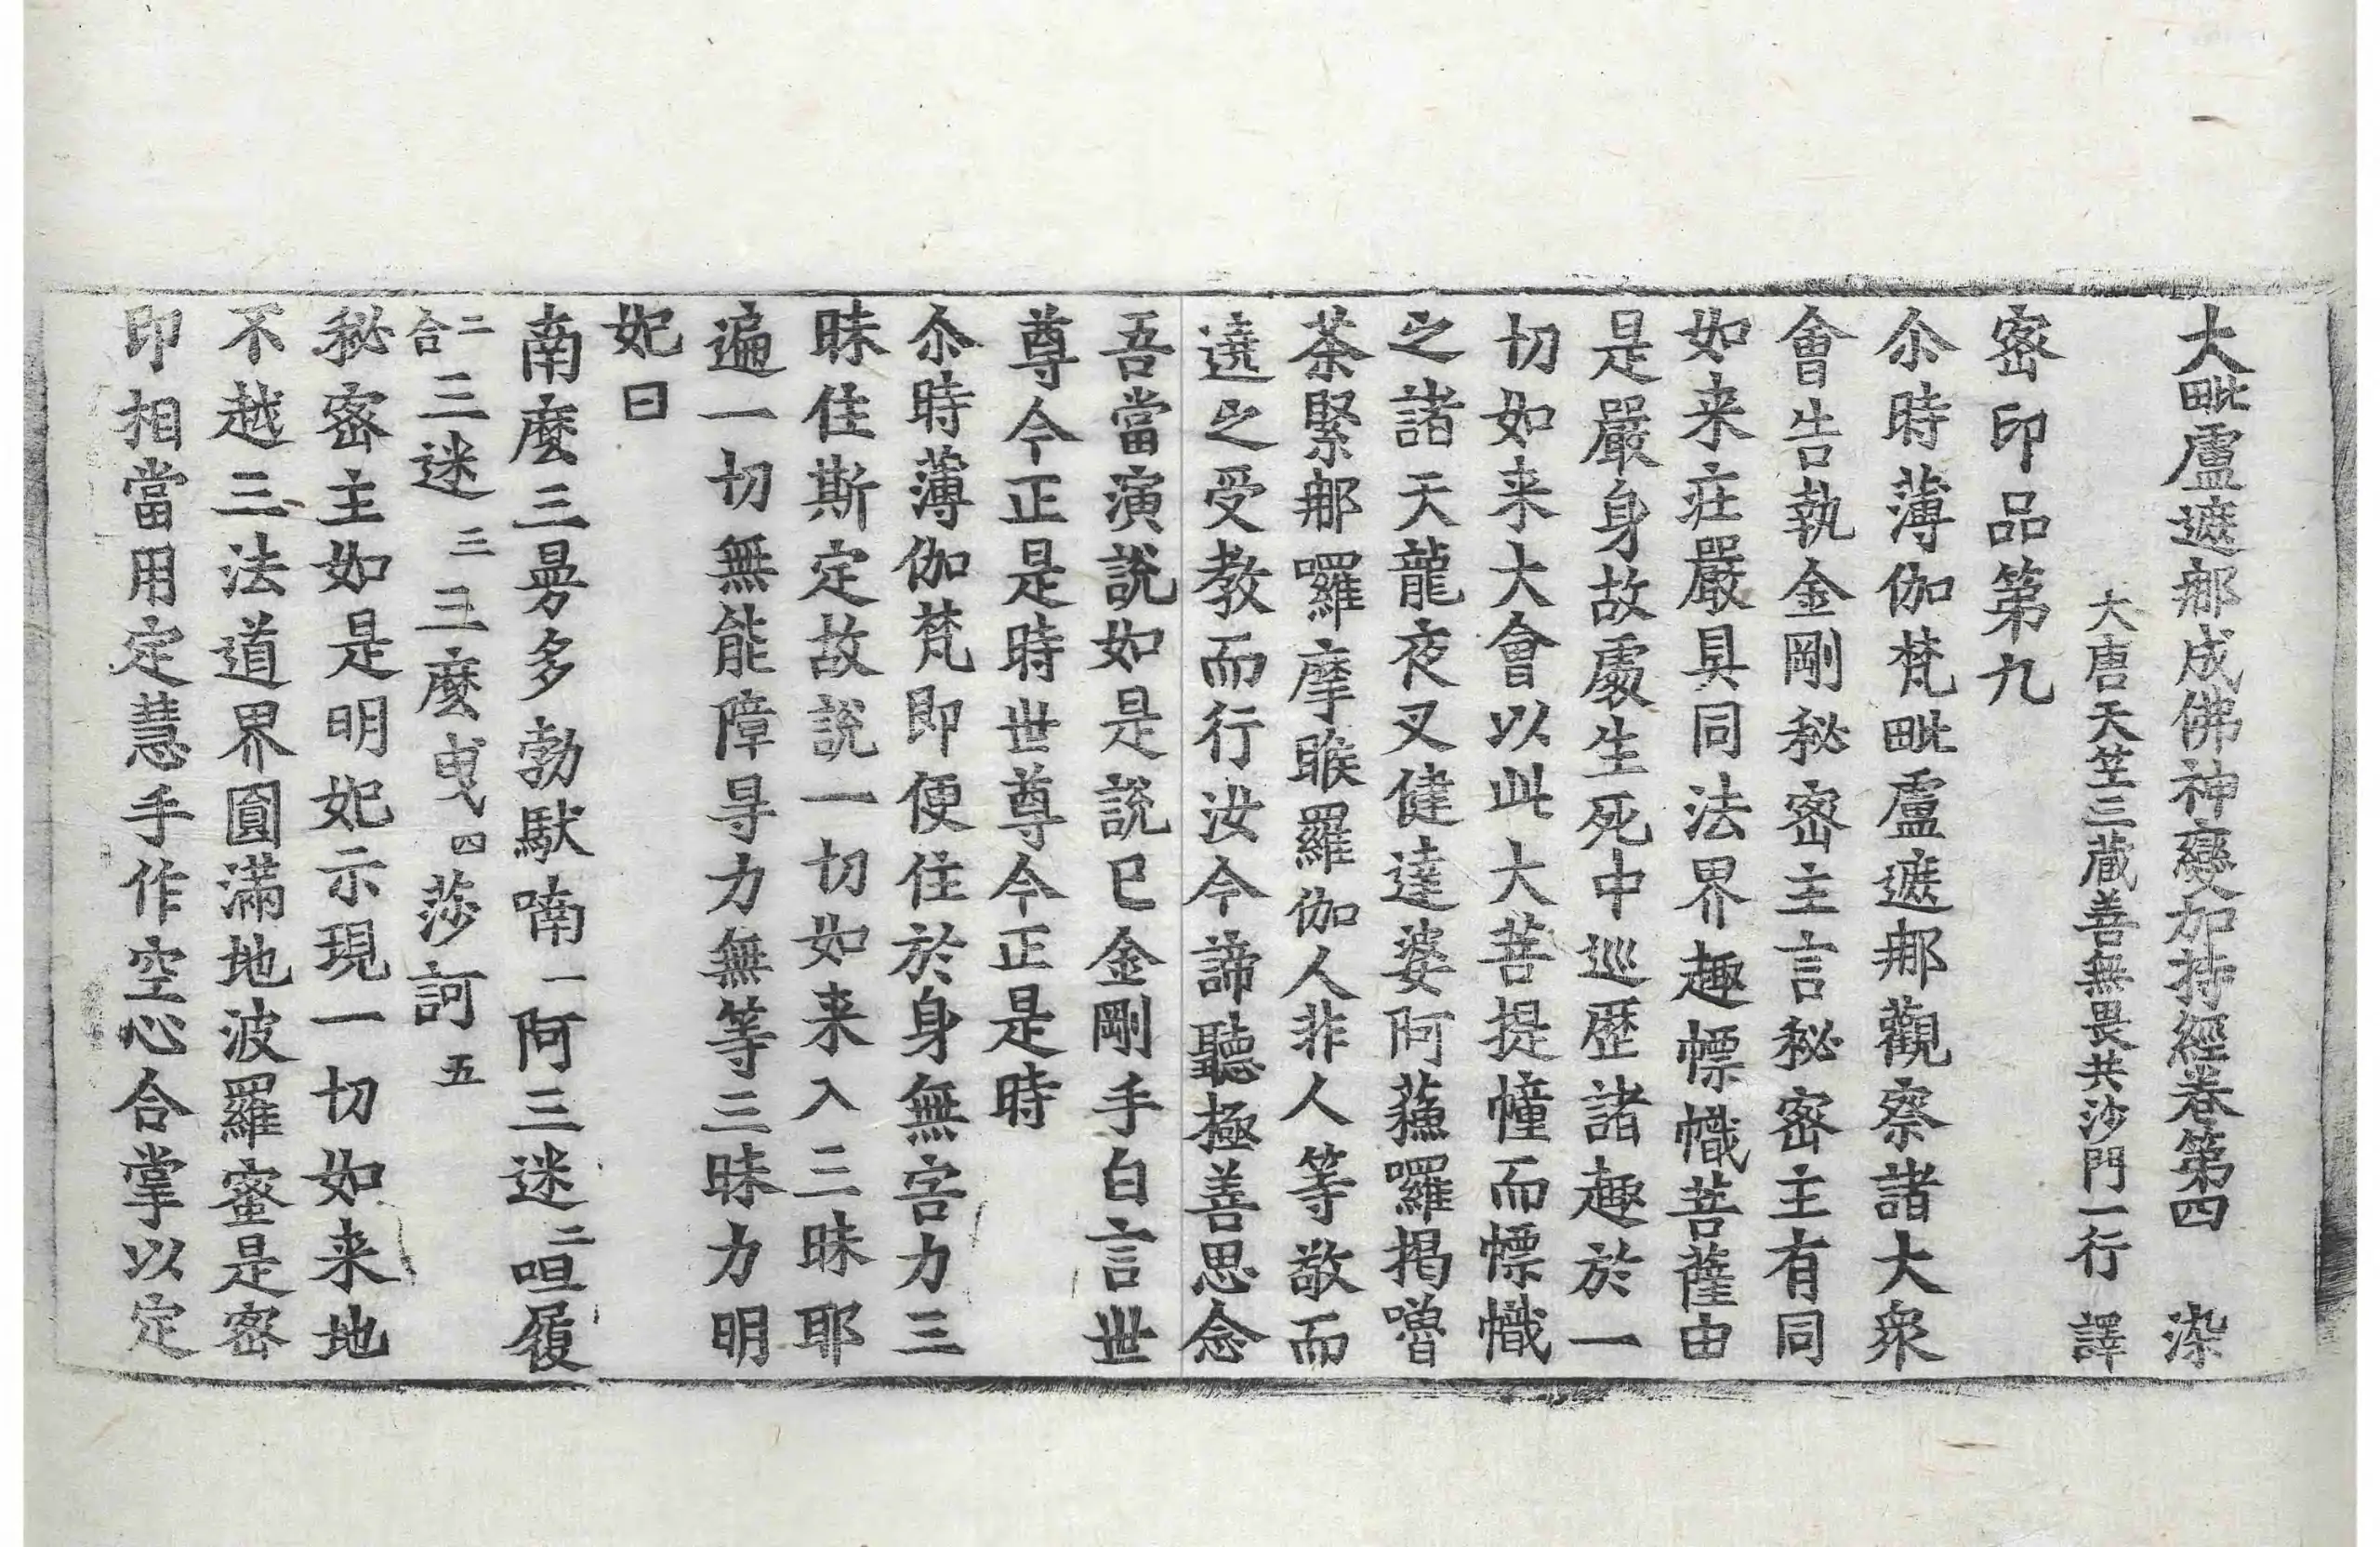 大毗盧遮郍成佛神變加持經卷第四 染
大唐天笁三藏善無畏共沙門一行 譯
密印品第九
尒時薄伽梵毗盧遮郍觀察諸大衆
會告執金剛秘密主言秘密主有同
如来莊嚴具同法界趣幖幟菩薩由
是嚴身故處生死中巡歷諸趣於一
切如来大會以此大菩提幢而幖幟
之諸天龍夜叉健達婆阿蘓囉揭嚕
茶緊郍囉摩睺羅伽人非人等敬而
遶之受教而行汝今諦聽極善思念
吾當演說如是說已金剛手白言世
尊今正是時世尊今正是時
尒時薄伽梵即便住於身無害力三
昧住斯定故說一切如来入三昧耶
遍一切無能障㝵力無等三昧力明
妃曰
南麼三曼多勃馱喃一阿三迷二咺履
二合三迷三三麼曳四莎訶五
秘密主如是明妃示現一切如来地
不越三法道界圓滿地波羅蜜是密
印相當用定慧手作空心合掌以定